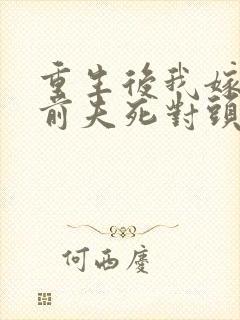 重生後我嫁
前夫死對頭
何西慶